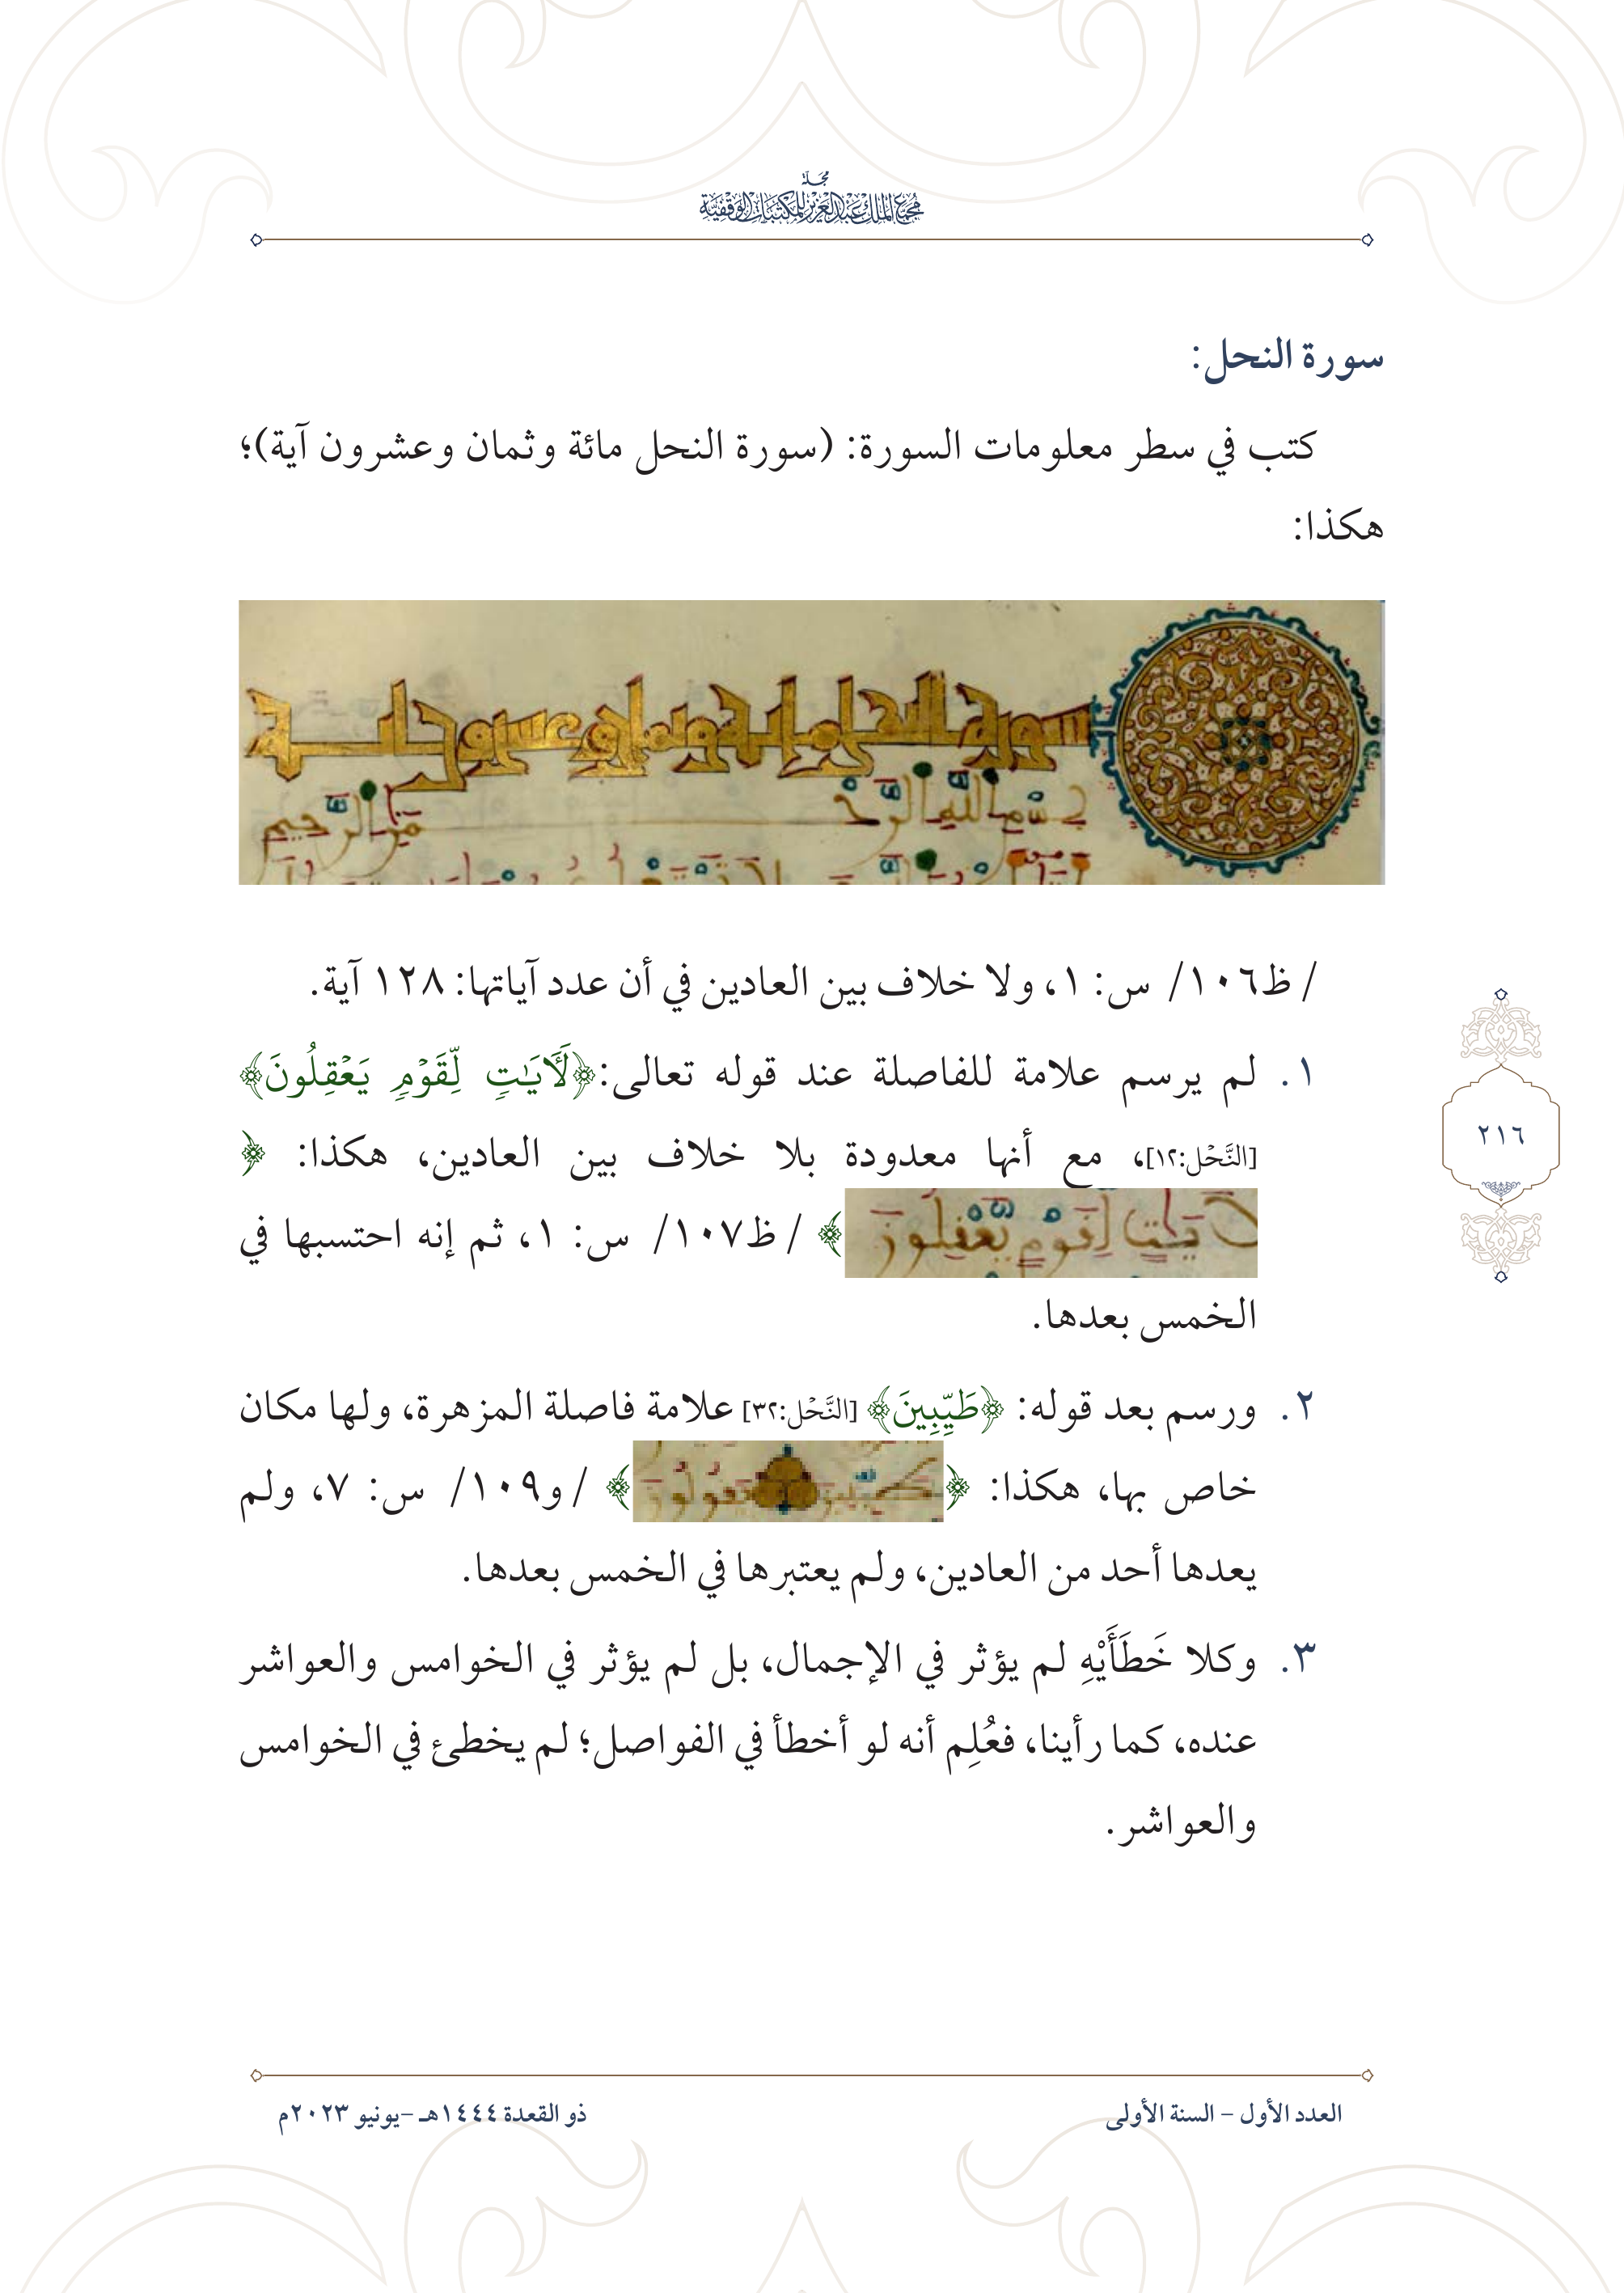 مجلة
مجمع الملك عبدالعزيز للمكتبات الوقفية
سورة النحل:
كتب في سطر معلومات السورة: (سورة النحل مائة وثمان وعشرون آية)؛
هكذا:
سورة النحل مائة وثمان وعشرون آية
بسم الله الرحـ
ـمن الرحيم
/ ظ١٠٦/ س: ١، ولا خلاف بين العادين في أن عدد آياتها: ١٢٨ آية.
١. لم يرسم علامة للفاصلة عند قوله تعالى: ﴿لَأٓيَٰتٖ لِّقَوۡمٖ يَعۡقِلُونَ﴾
[النَّحۡل:١٢]، مع أنها معدودة بلا خلاف بين العادين، هكذا: ﴿
لآيات لقوم يعقلون ﴾ / ظ١٠٧/ س: ١، ثم إنه احتسبها في
الخمس بعدها.
٢. ورسم بعد قوله: ﴿طَيِّبِينَ﴾ [النَّحۡل:٣٢] علامة فاصلة المزهرة، ولها مكان
خاص بها، هكذا: ﴿ طيبين يقولون ﴾ / و١٠٩/ س: ٧، ولم
يعدها أحد من العادين، ولم يعتبرها في الخمس بعدها.
٣. وكلا خَطَأَيْهِ لم يؤثر في الإجمال، بل لم يؤثر في الخوامس والعواشر
عنده، كما رأينا، فعُلِم أنه لو أخطأ في الفواصل؛ لم يخطئ في الخوامس
والعواشر.
٢١٦
العدد الأول – السنة الأولى
ذو القعدة ١٤٤٤هـ –يونيو ٢٠٢٣م